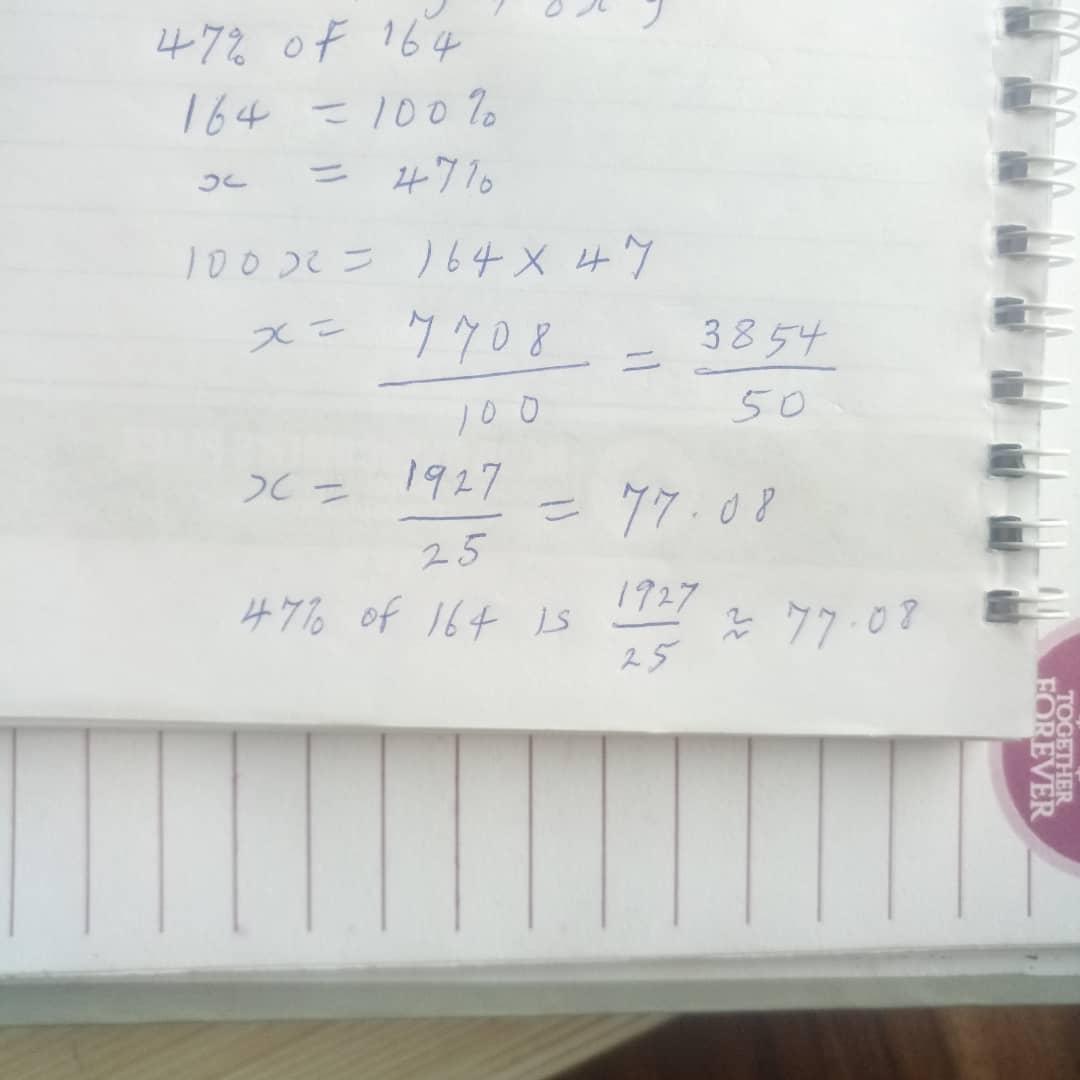 47% of 164
164 = 100%
x = 47%
100x = 164 x 47
x = 7708/100 = 3854/50
x = 1927/25 = 77.08
47% of 164 is 1927/25 ≈ 77.08
TOGETHER
FOREVER